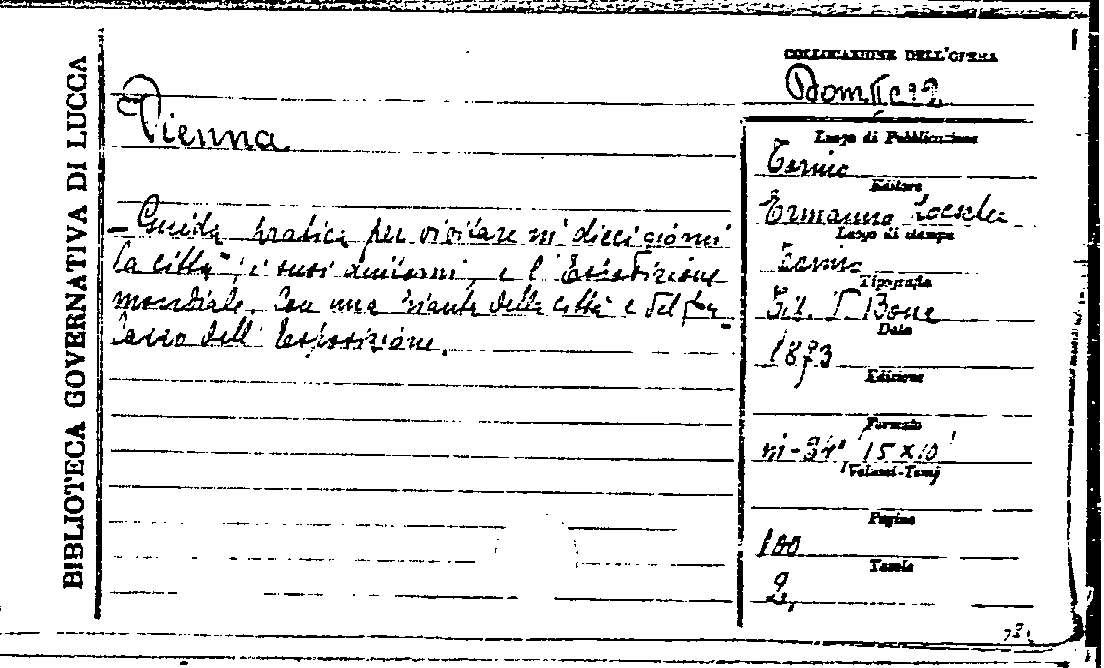 BIBLIOTECA GOVERNATIVA DI LUCCA
COLLOCAZIONE DELL'OPERA
Vienna
Luogo di Pubblicazione
Torino
Editore
Ermanno Loescher
Luogo di stampa
Torino
Tipografia
V. Bona
Data
1873
Edizione
Formato
in-24° (15×10)
Volumi-Tomi
Pagine
100
Tavole
2,
- Guida pratica per visitare in dieci giorni
la città, i suoi dintorni, e l'Esposizione
mondiale, con una pianta della città e del pa-
lazzo dell'Esposizione.